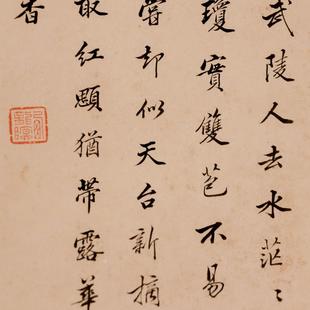 武陵人去水茫〻
瓊實雙苞不易
嘗却似天台新摘
取紅顋猶帶露華
香